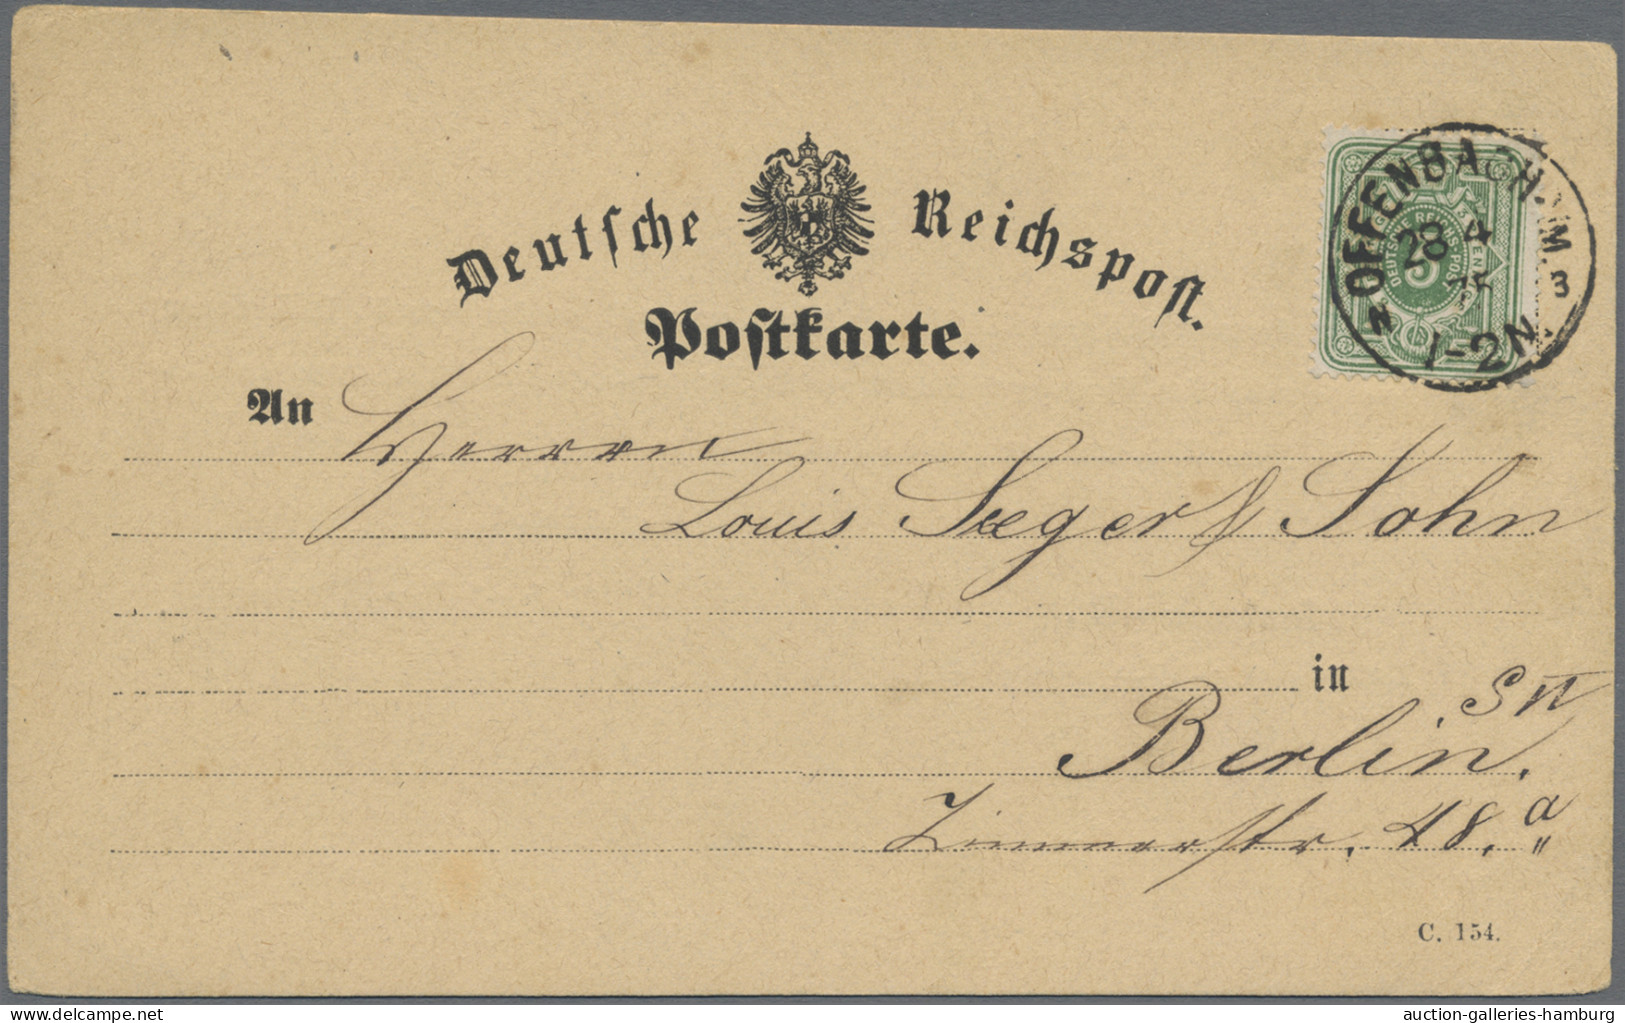 Deutsche Reichspost.
Postkarte.
OFFENBACH
28 4
75
1-2N.
3
An Herrn
Louis Saeger & Sohn
in
Berlin. SW
Zimmerstr. 48. a
C. 154.
delcampe.net
auction-galleries-hamburg